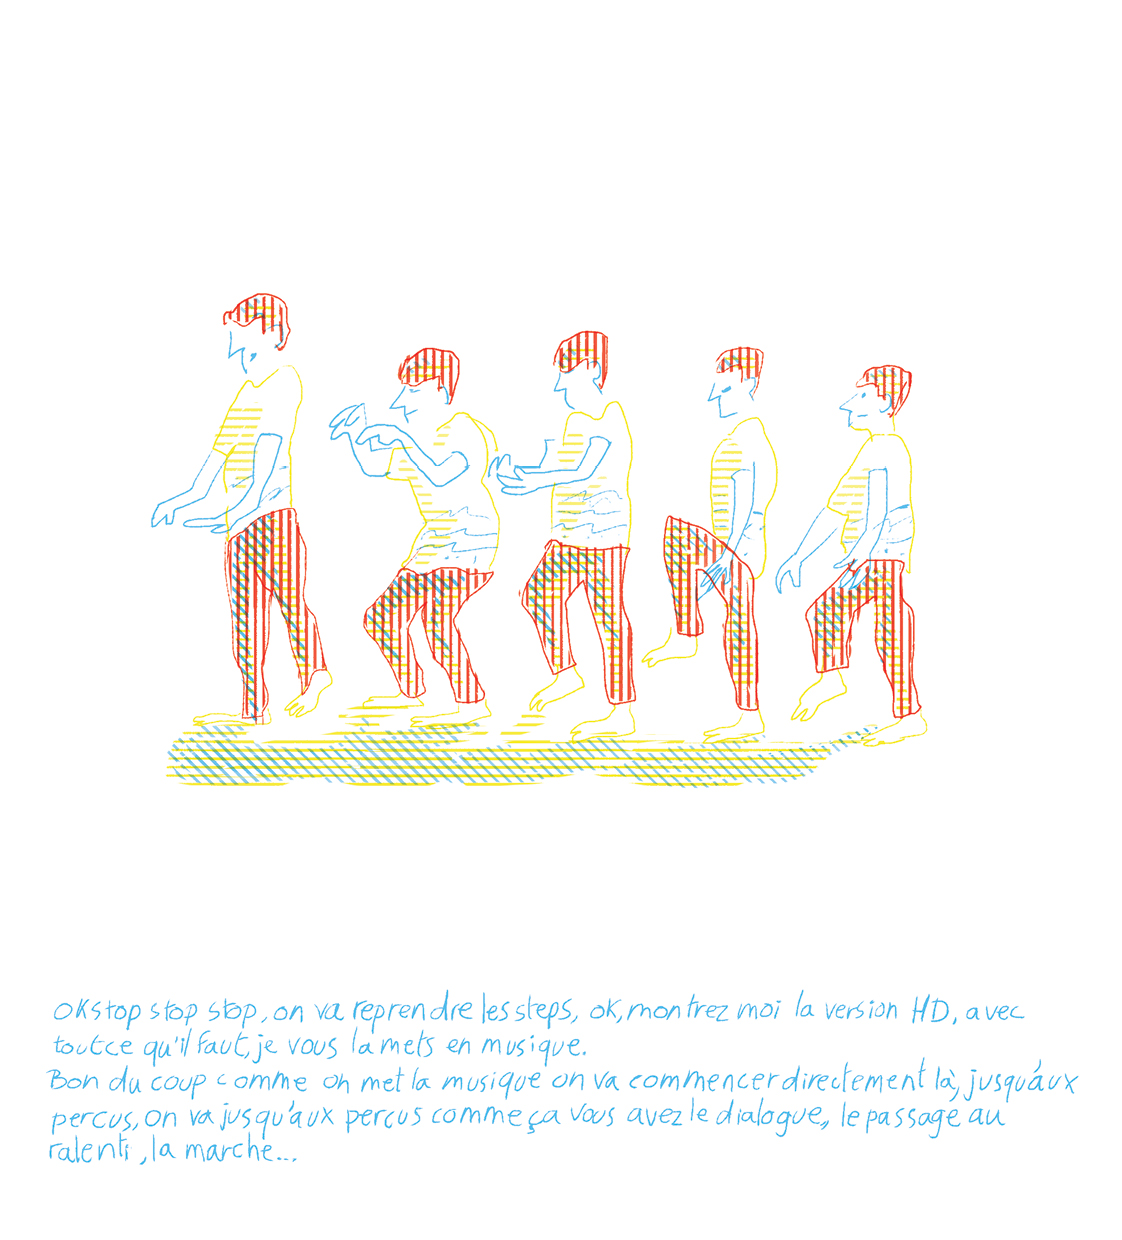 OK stop stop stop, on va reprendre les steps, ok, montrez moi la version HD, avec
toutce qu'il faut, je vous la mets en musique.
Bon du coup comme on met la musique on va commencer directement là, jusqu'áux
percus, on va jusqu'aux percus comme ça vous avez le dialogue, le passage au
ralenti, la marche...